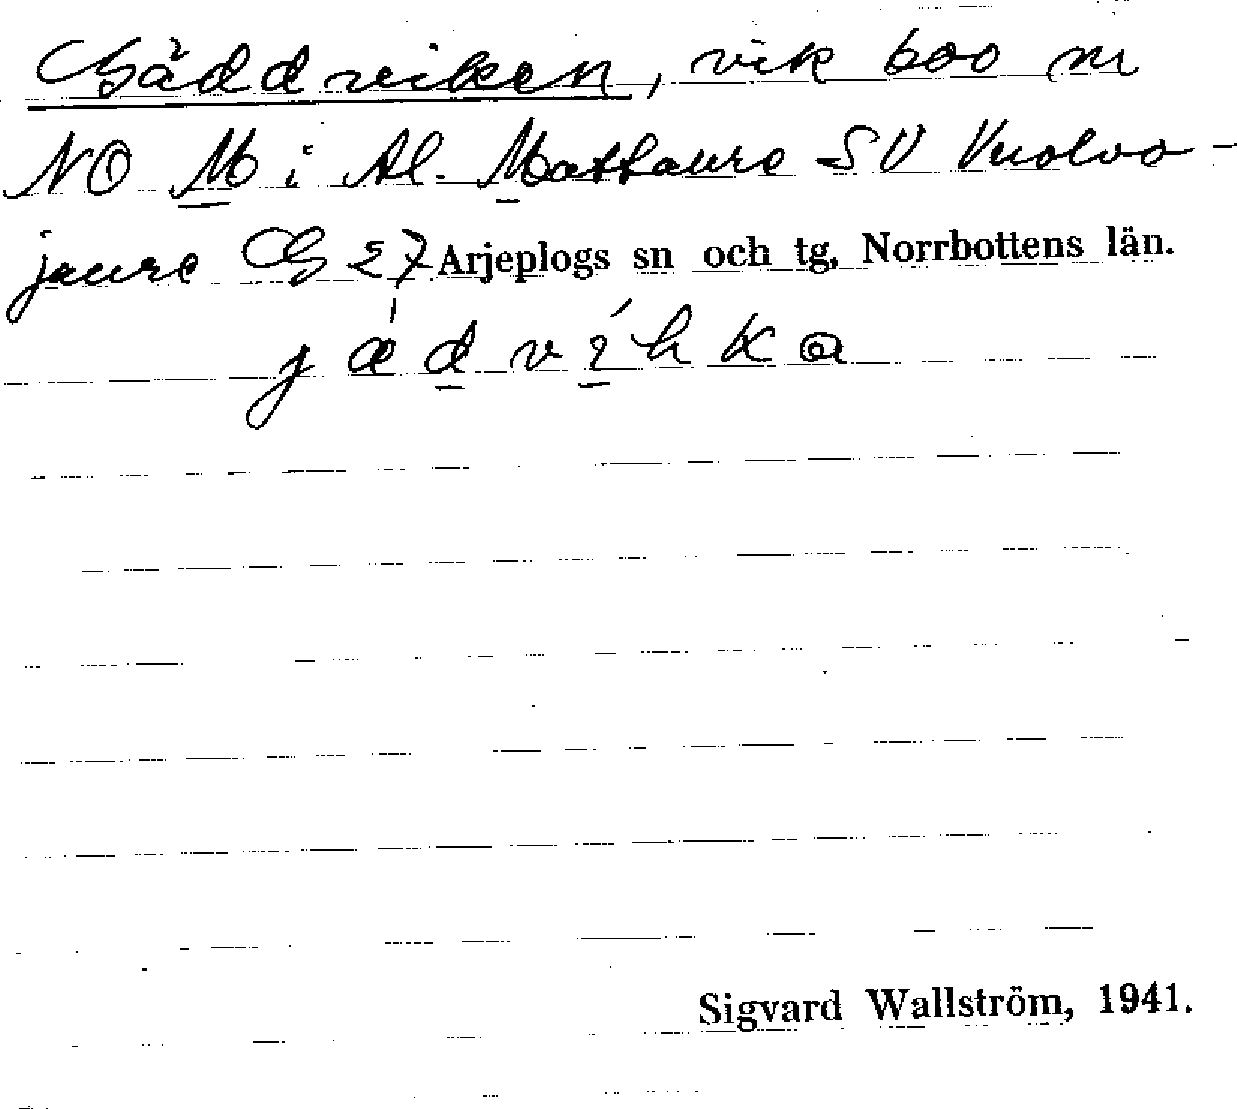 Gäddviken, vik 600 m
NO M i Al. Mattaure SV Vuolvo-
jaure G 27 Arjeplogs sn och tg, Norrbottens län.
jǽdvíhka
Sigvard Wallström, 1941.